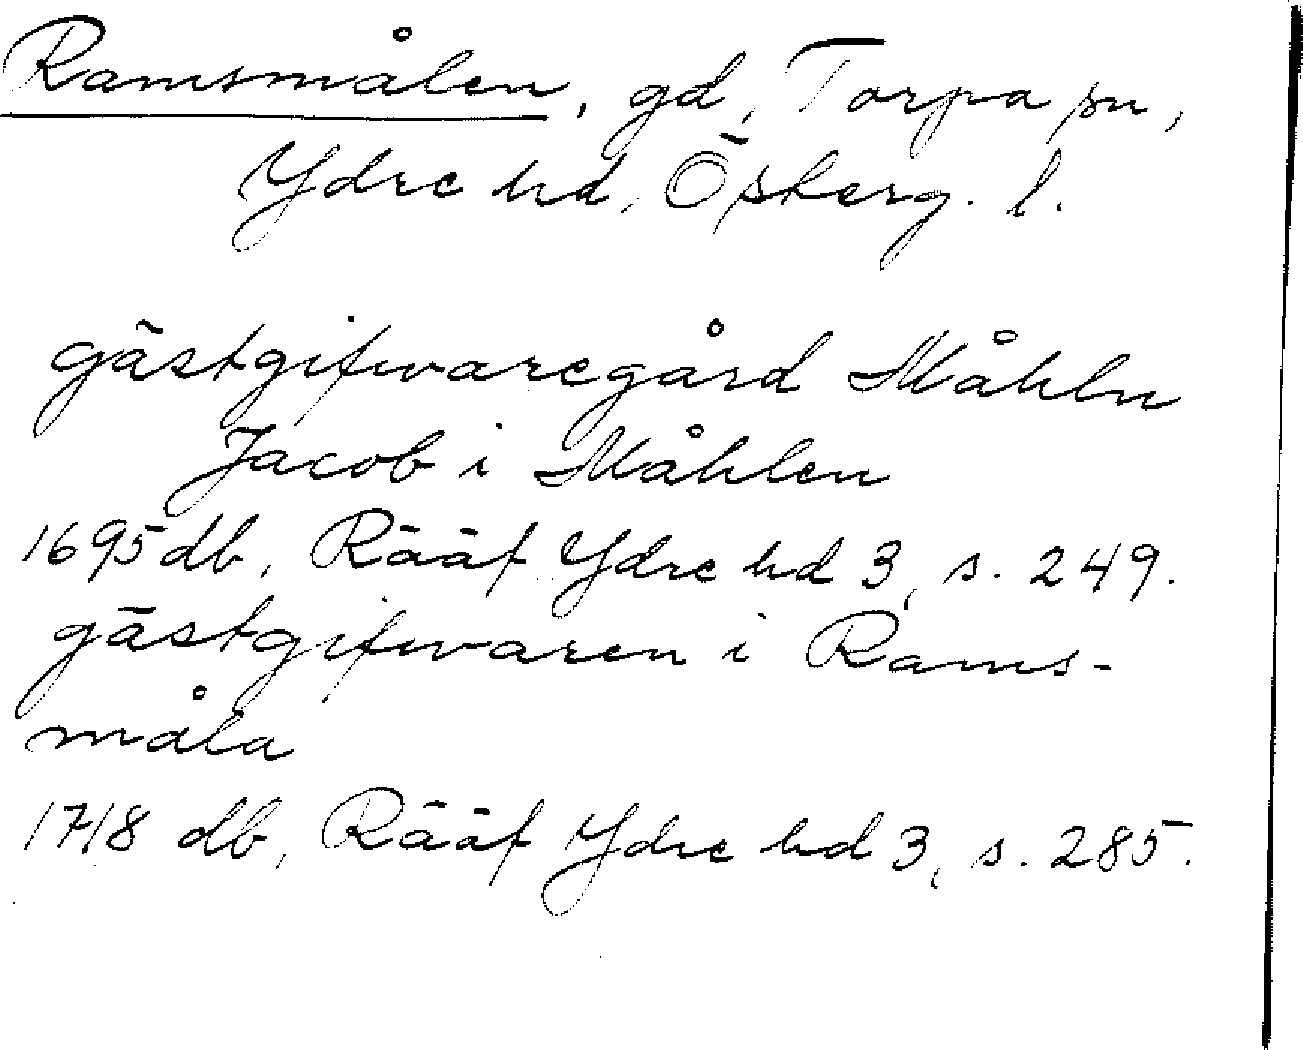 Ramsmålen, gd, Torpa sn,
Ydre hd, Österg. l.
gästgifwaregård Måhln
Jacob i Måhlen
1695 db, Rääf Ydre hd 3, s. 249.
gästgifwaren i Rams-
måla
1718 db, Rääf Ydre hd 3, s. 285.